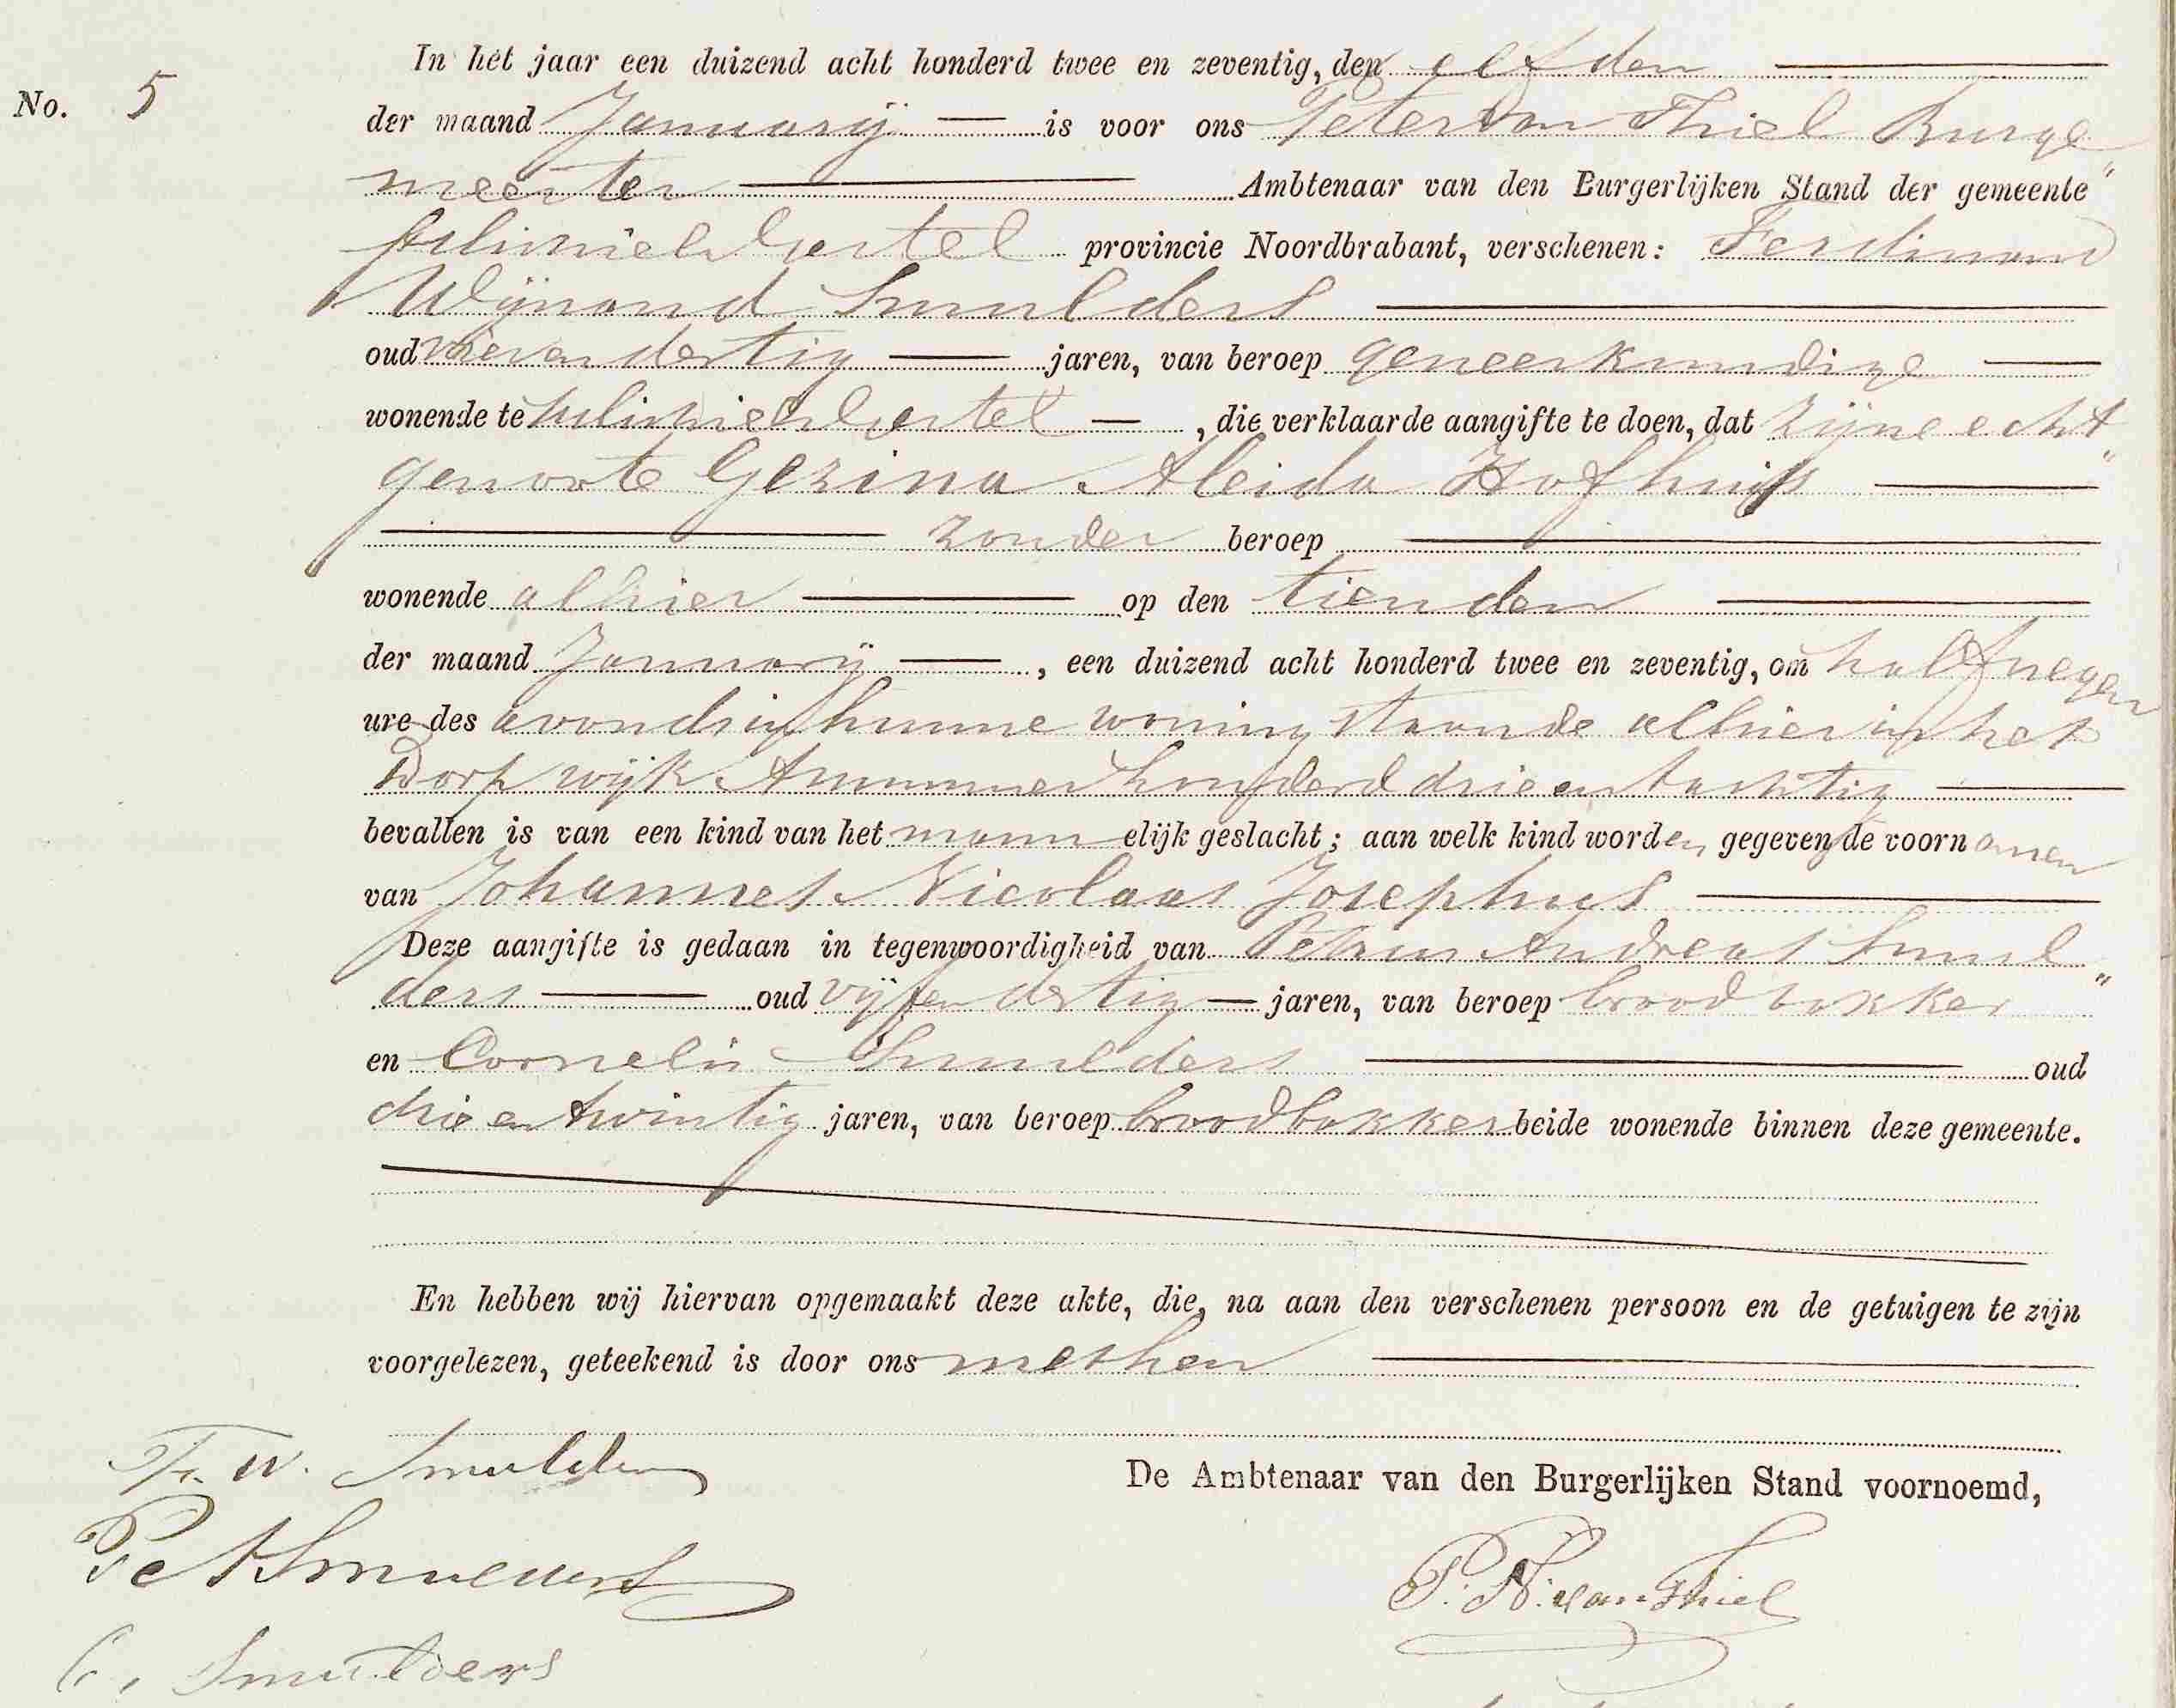 In het jaar een duizend acht honderd twee en zeventig, den elfden
No. 5
der maand Januarij is voor ons Peter van Thiel Burge
meester Ambtenaar van den Burgerlijken Stand der gemeente
provincie Noordbrabant, verschenen: Ferdinand
Wijnand Smulders
oud jaren, van beroep geneeskundige
wonende te , die verklaarde aangifte te doen, dat zijne echt
genoote Gezina Aleida Hofhuis
zonder beroep
wonende alhier op den tienden
der maand Januarij , een duizend acht honderd twee en zeventig, om half negen
ure des avonds in hunne woning staande alhier in het
Dorp wijk A nummer honderd drie en tachtig
bevallen is van een kind van het mannelijk geslacht; aan welk kind worden gegeven de voornamen
van Johannes Nicolaas Josephus
Deze aangifte is gedaan in tegenwoordigheid van Petrus Andreas Smul
ders oud vijf en dertig jaren, van beroep broodbakker
en Cornelis Smulders oud
drie en twintig jaren, van beroep broodbakker beide wonende binnen deze gemeente.
En hebben wij hiervan opgemaakt deze akte, die, na aan den verschenen persoon en de getuigen te zijn
voorgelezen, geteekend is door ons met hen
F. W. Smulders
De Ambtenaar van den Burgerlijken Stand voornoemd,
P. A. Smulders
P. N. van Thiel
C. Smulders